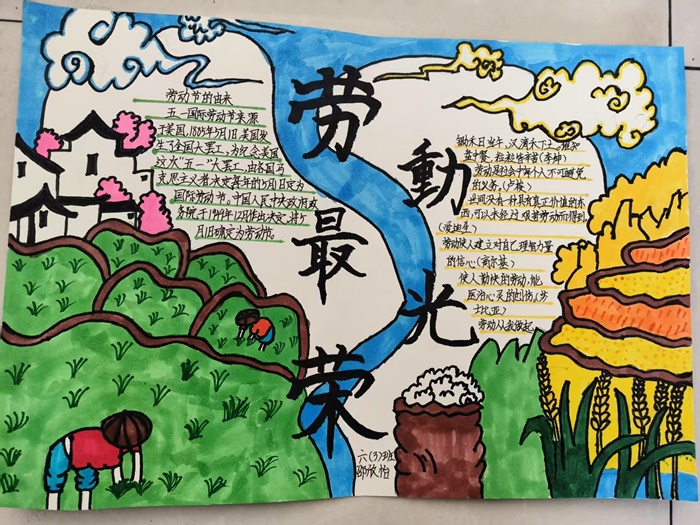 劳動最光荣
劳动节的由来
五一国际劳动节来源
于美国,1885年5月1日,美国发
生了全国大罢工,为纪念美国
这次“五一”大罢工,由各国马
克思主义者决定其年的5月1日定为
国际劳动节,中国人民中央政府政
务院于1949年12月作出决定,将5
月1日确定为劳动节。
锄禾日当午,汗滴禾下土,谁知
盘中餐,粒粒皆辛苦(李绅)
劳动是社会中每个人不可避免
的义务,(卢梭)
世间没有一种具有真正价值的东
西,可以不经过艰苦劳动而得到
(爱迪生)
劳动使人建立对自己理智力量
的信心(高尔基)
使人勤快的劳动,能
医治心灵的创伤(莎
士比亚)
劳动从我做起
六(3)班
邵欣怡